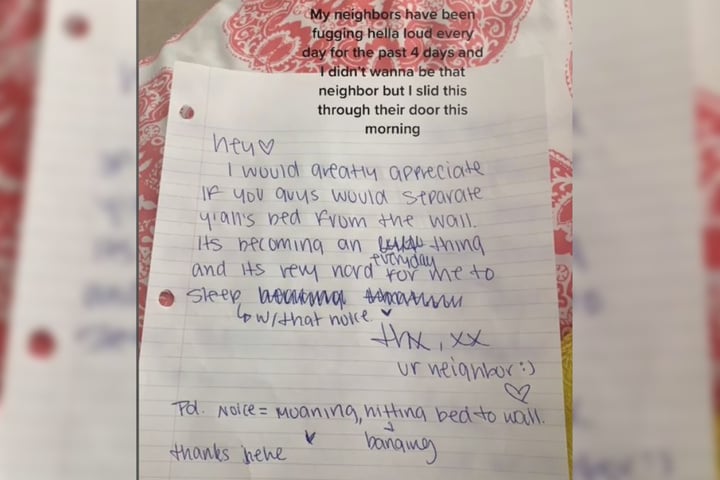 My neighbors have been
fugging hella loud every
day for the past 4 days and
I didn't wanna be that
neighbor but I slid this
through their door this
morning
hey♡
I would greatly appreciate
if you guys would separate
y'all's bed from the wall.
Its becoming an everyday thing
and its very hard for me to
sleep
↳ w/that noise.
thx, xx
ur neighbor:)
♡
Pd. Noise = Moaning, hitting bed to wall.
↓
banging
thanks hehe